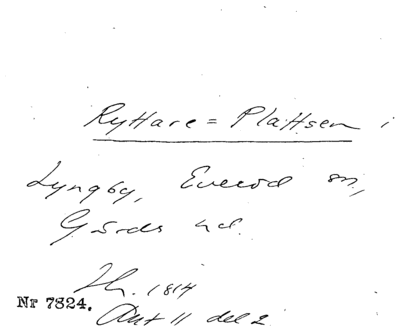 Ryttare=Plattsen i
Lyngby, Everöd sn,
Gärds hd.
Th. 1814
Nr 7824.
Ant 11 del 2